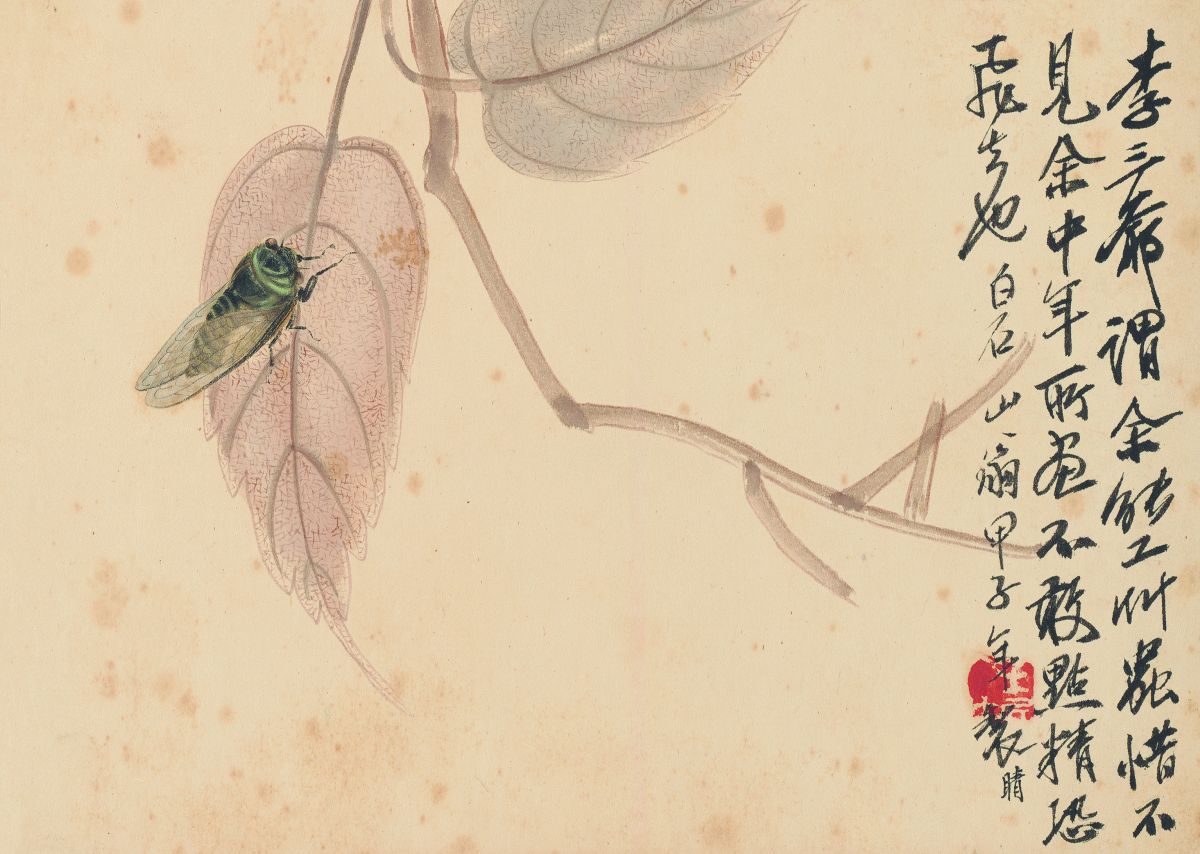 李三爺謂余能工艸蟲惜不
見余中年所画不敢點精恐
飛去也 白石山翁甲子年製 睛